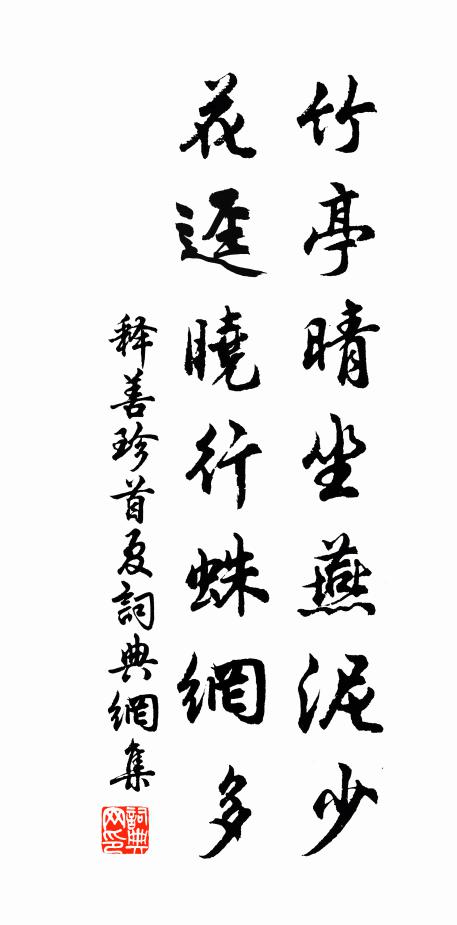 竹亭晴坐燕泥少
花迳曉行蛛網多
释善珍首夏詞典網集
詞典网印